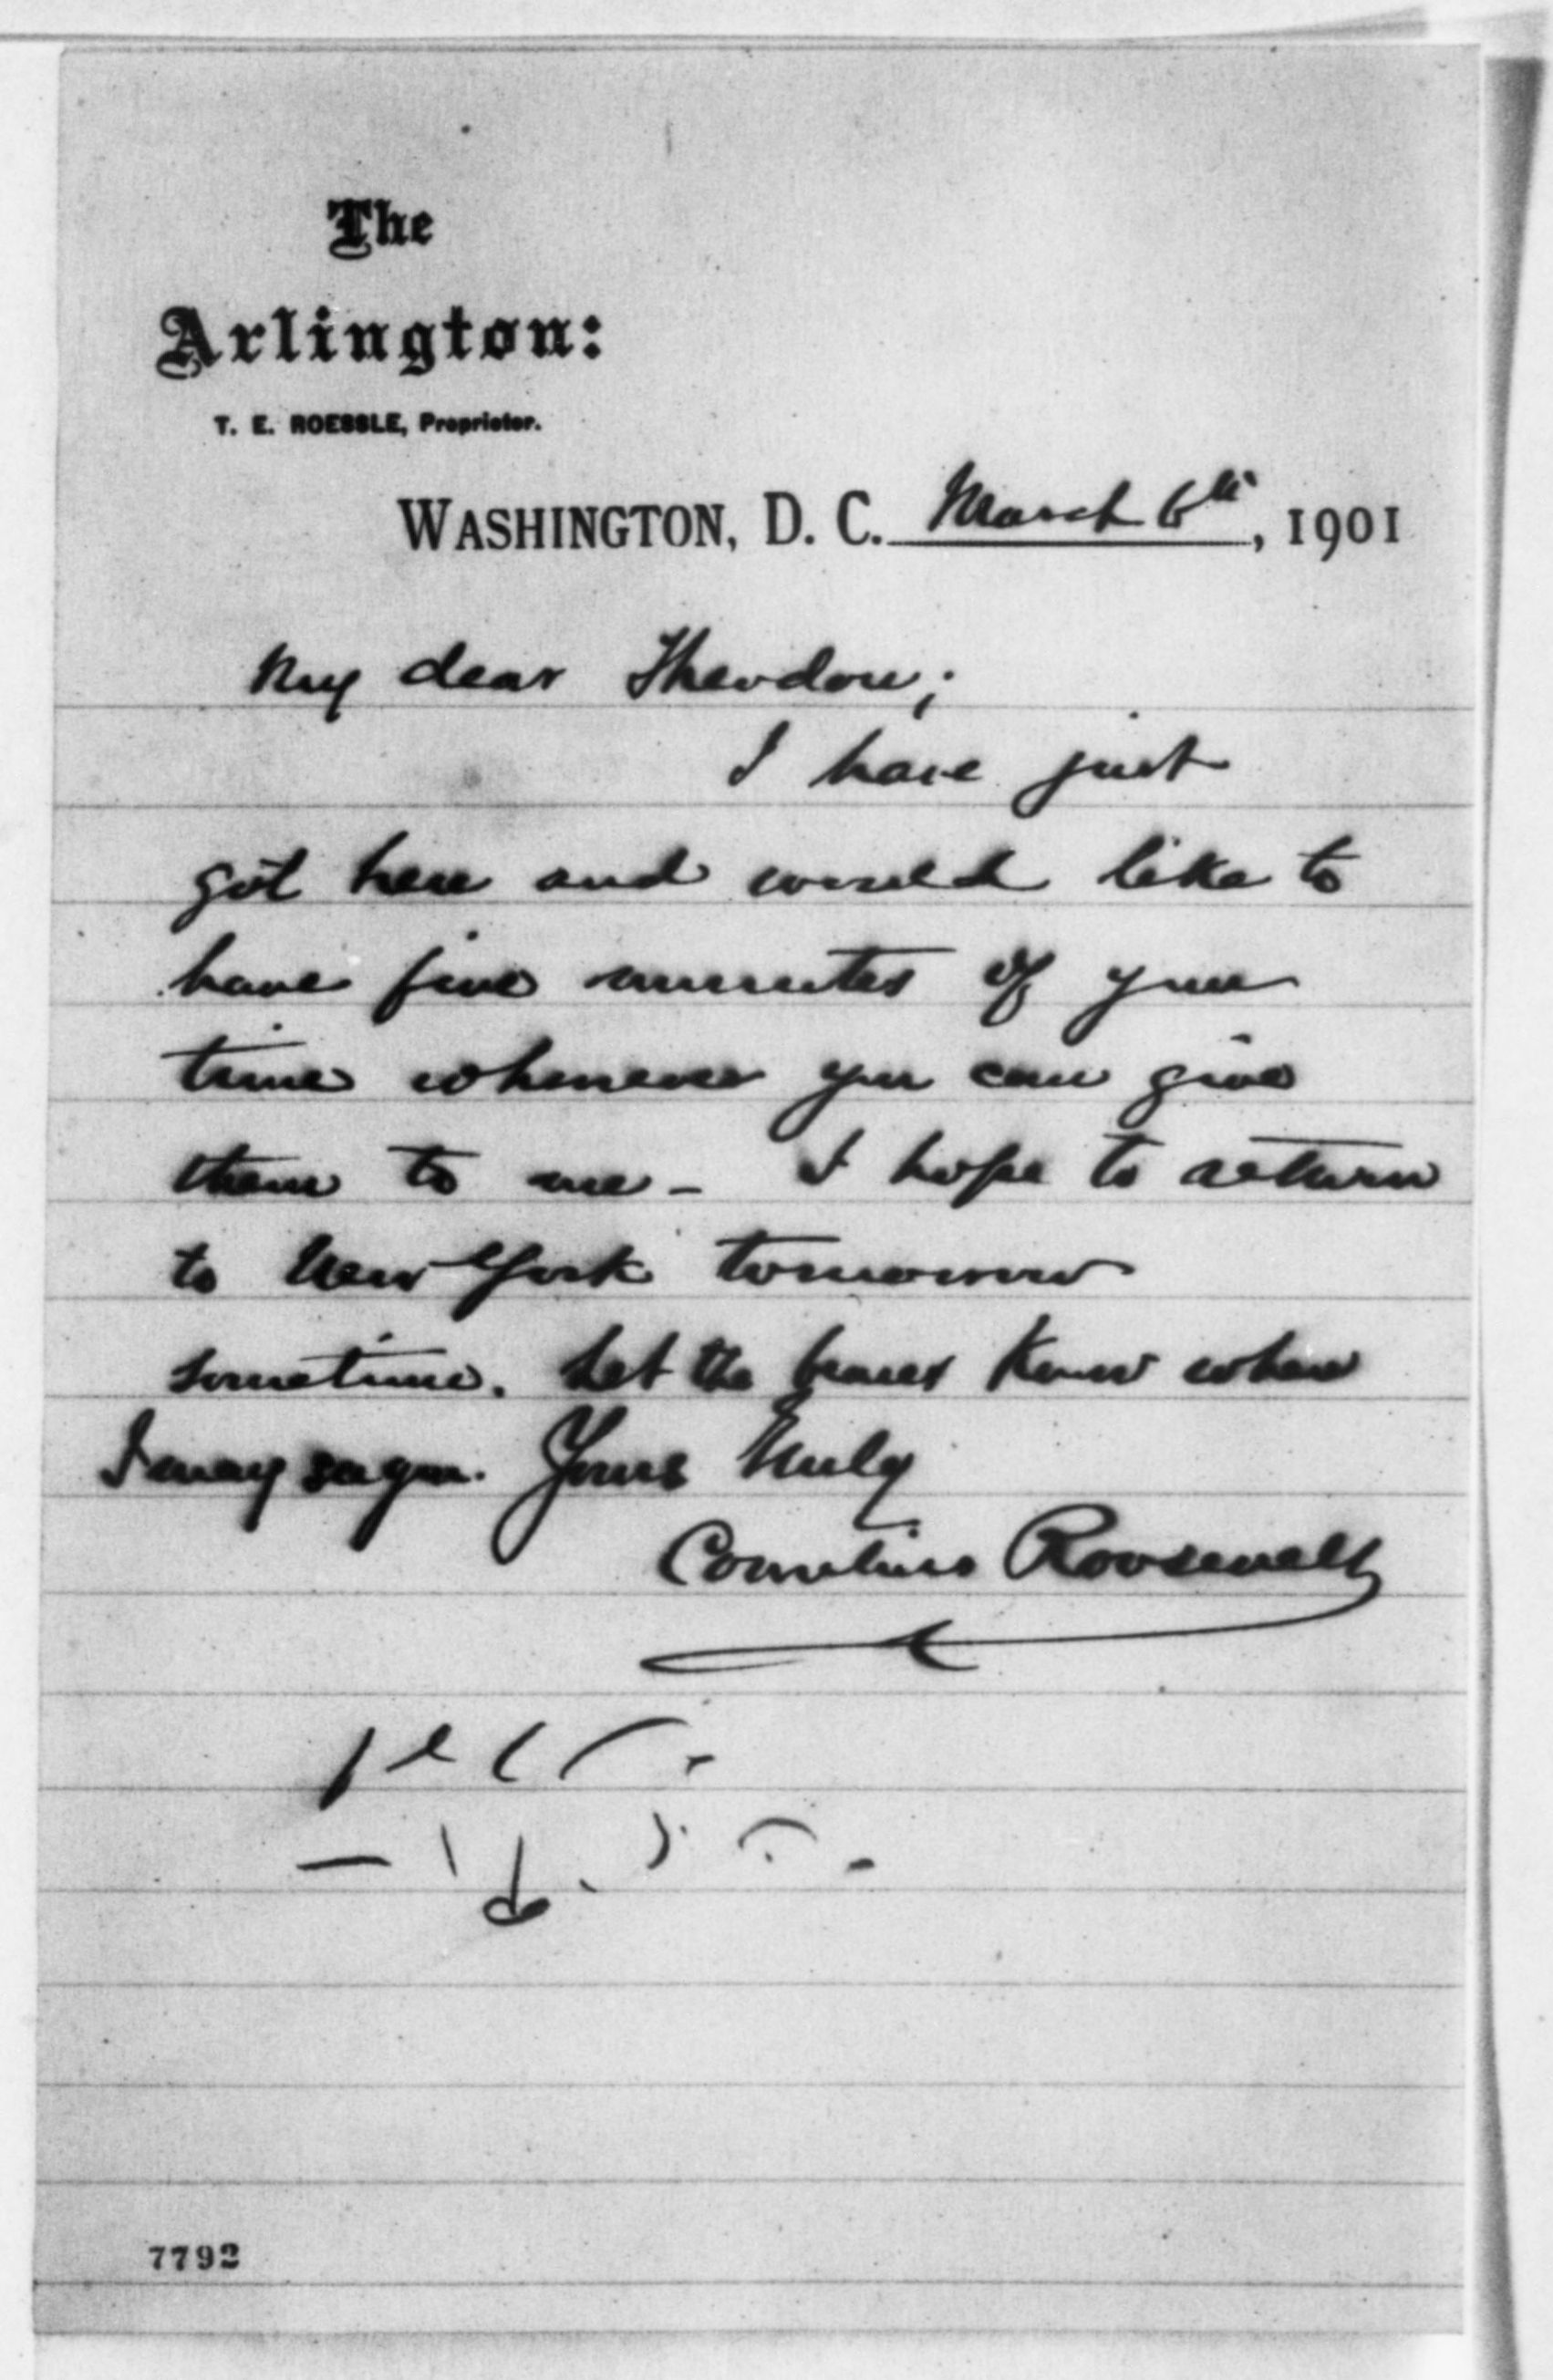 The
Arlington:
T. E. ROESSLE, Proprietor.
WASHINGTON, D. C. March 6th, 1901
My dear Theodore;
I have just
got here and would like to
have five minutes of your
time whenever you can give
them to me - I hope to return
to New York tomorrow
sometime. Let the know when
I may see you. Yours truly
Cornelius Roosevelt
7792